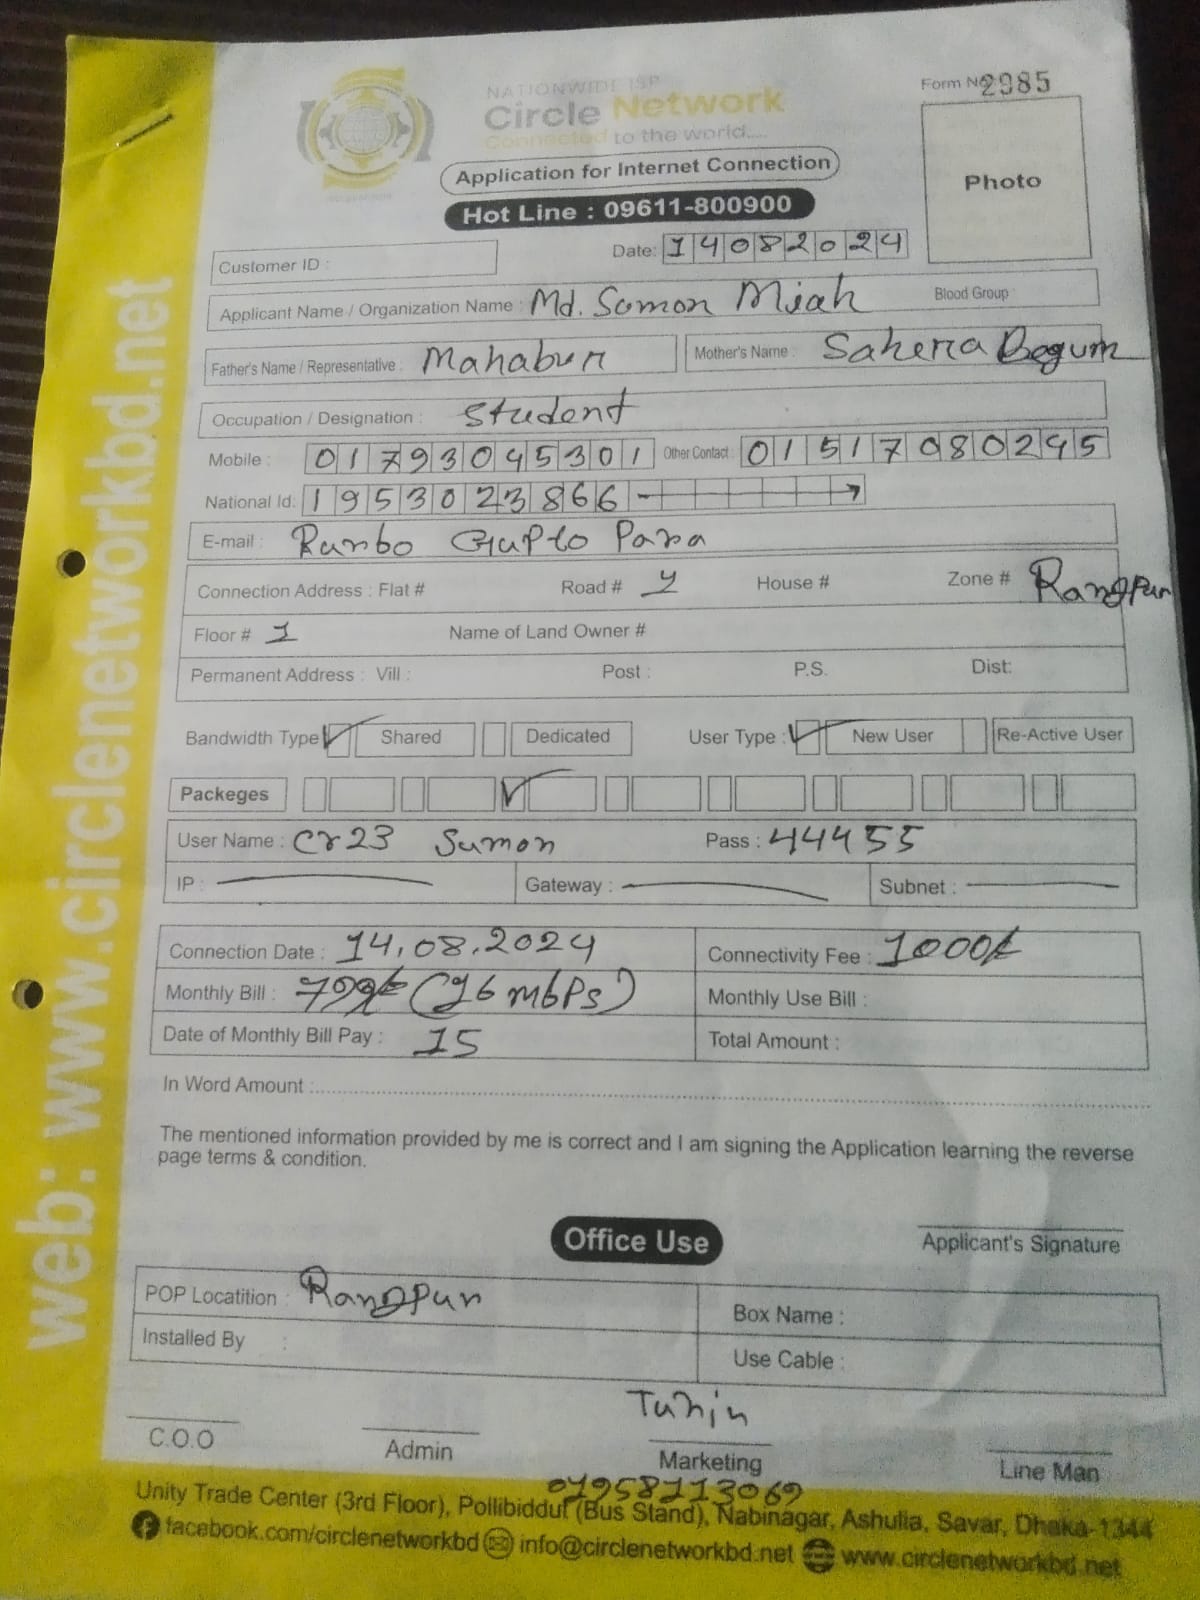 NATIONWIDE ISP
Circle Network
Connected to the world....
Form No 2985
Photo
Application for Internet Connection
Hot Line : 09611-800900
Date: 14082024
Customer ID :
Applicant Name / Organization Name : Md. Sumon Miah Blood Group
Father's Name / Representative : Mahabur Mother's Name : Sahera Begum
Occupation / Designation : Student
Mobile : 01793045301 Other Contact : 01517080245
National Id: 1953023866
E-mail : Ranbo Gupto Para
Connection Address : Flat # Road # House # Zone # Rangpur
Floor # 1 Name of Land Owner #
Permanent Address : Vill : Post : P.S. Dist:
Bandwidth Type Shared Dedicated User Type : New User Re-Active User
Packeges
User Name : Cr23 Sumon Pass : 44455
IP : Gateway : Subnet :
Connection Date : 14.08.2024 Connectivity Fee : 1000/-
Monthly Bill : (16 mbPs) Monthly Use Bill :
Date of Monthly Bill Pay : 15 Total Amount :
In Word Amount :
The mentioned information provided by me is correct and I am signing the Application learning the reverse
page terms & condition.
Office Use
Applicant's Signature
POP Locatition : Rangpur Box Name :
Installed By : Use Cable :
Tuhin
C.O.O Admin Marketing Line Man
01958113069
Unity Trade Center (3rd Floor), Pollibiddut (Bus Stand), Nabinagar, Ashulia, Savar, Dhaka-1344
facebook.com/circlenetworkbd info@circlenetworkbd.net www.circlenetworkbd.net
web: www.circlenetworkbd.net